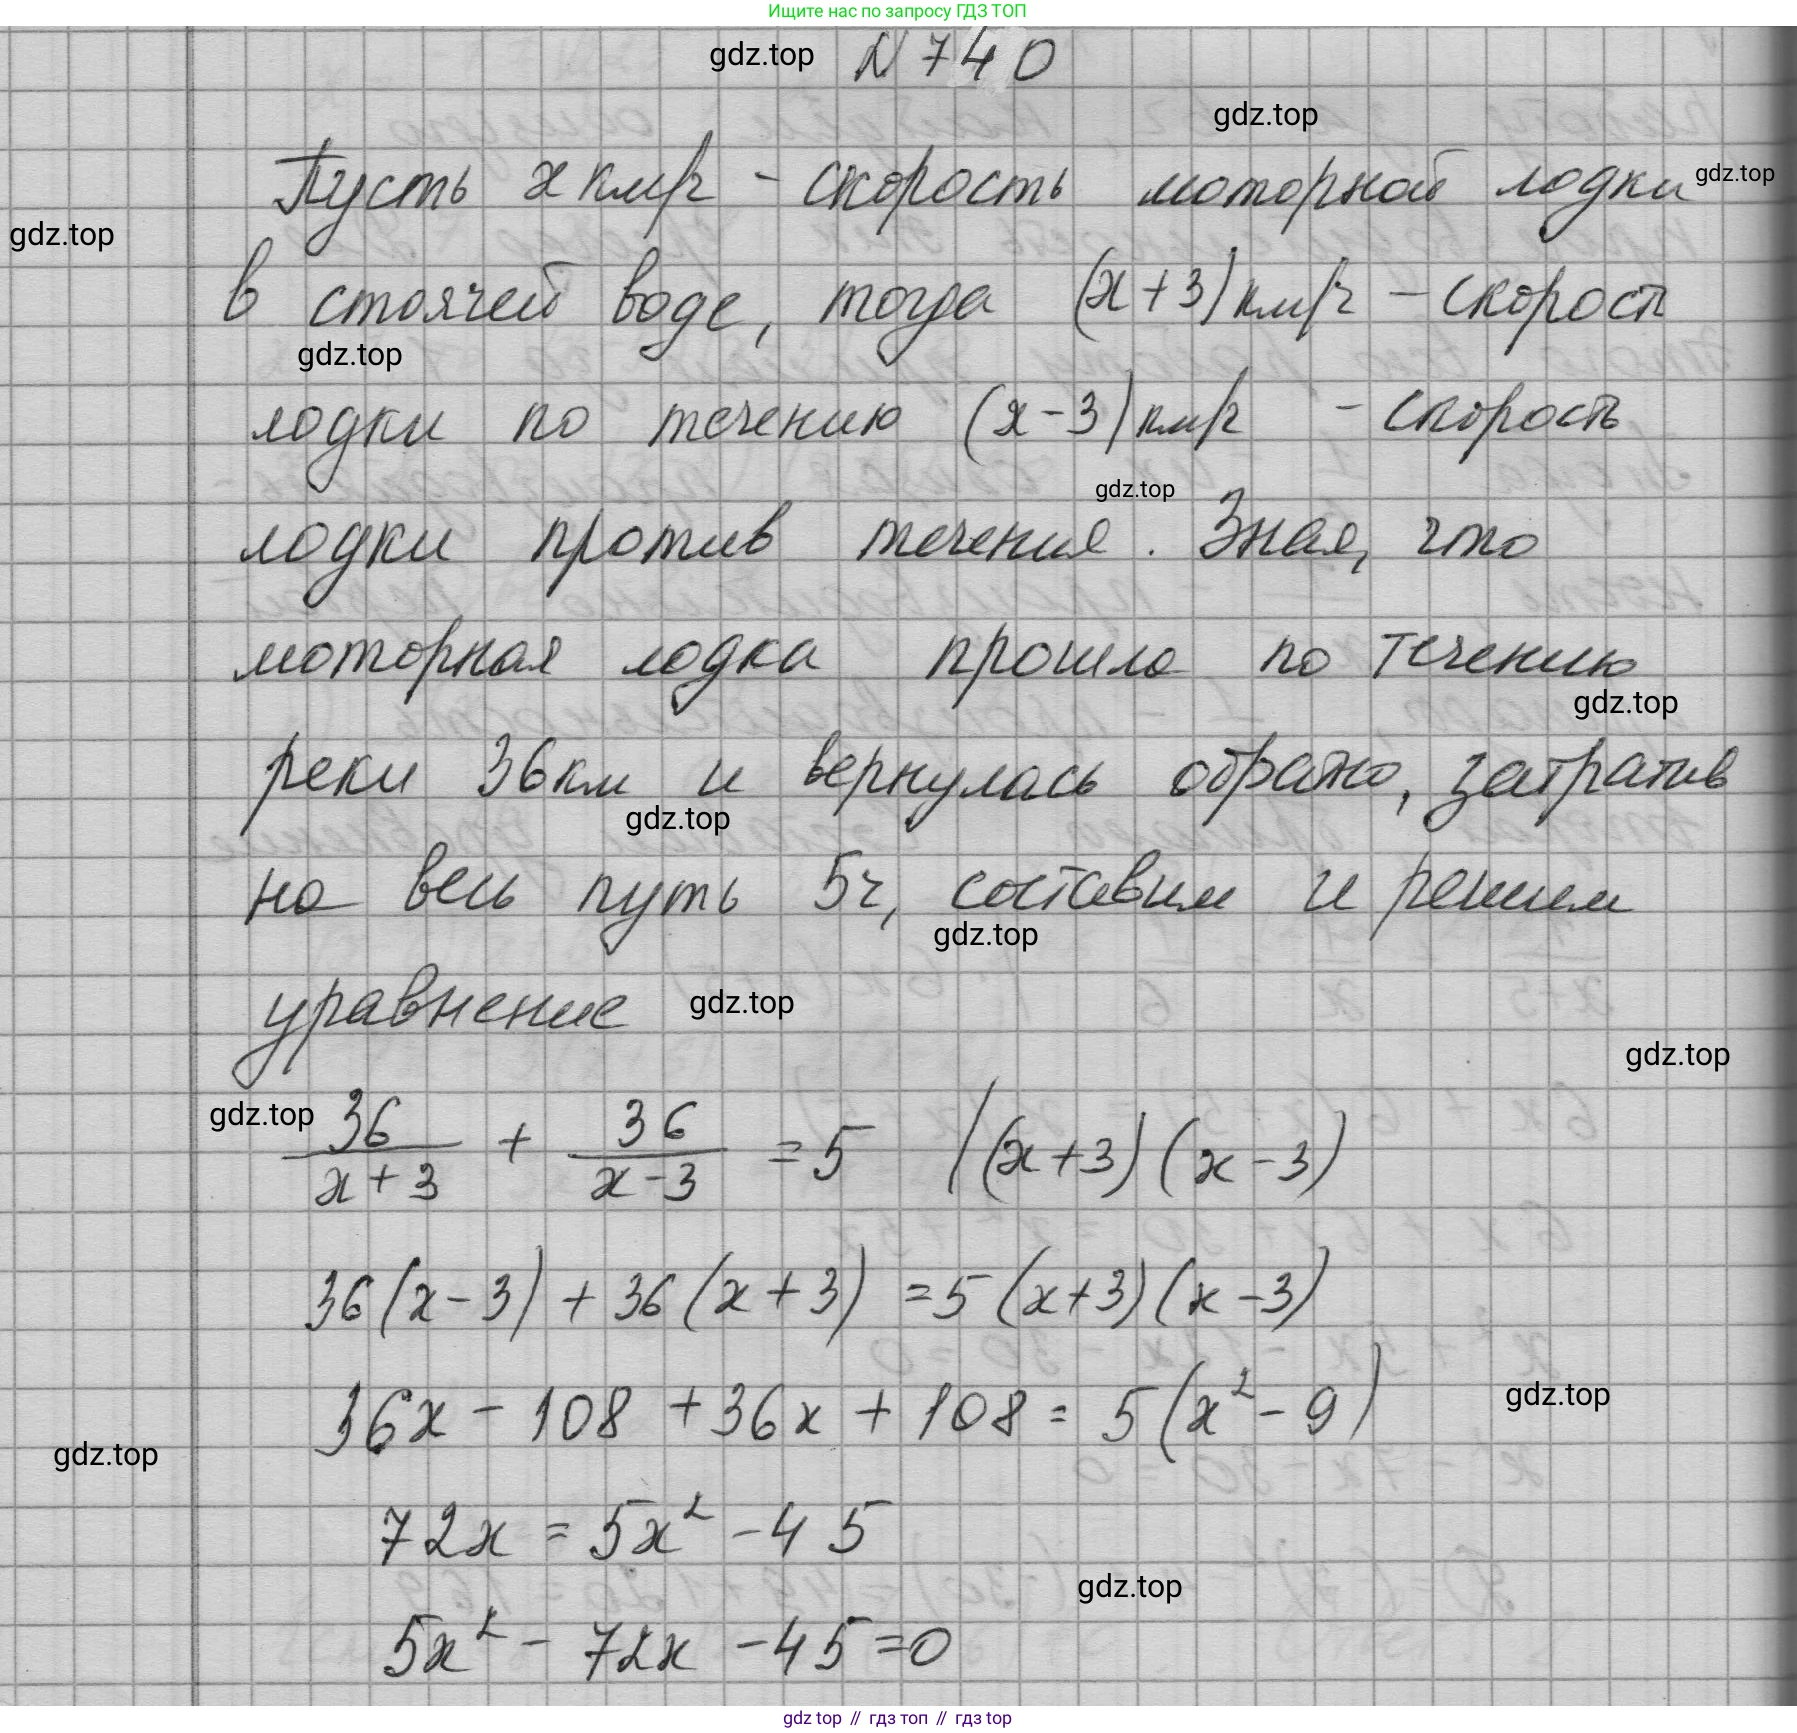 Ищите нас по запросу ГДЗ ТОП
gdz.top N 740
gdz.top
Пусть x км/ч - скорость моторной лодки gdz.top
gdz.top
в стоячей воде, тогда (x+3) км/ч - скорость
gdz.top
лодки по течению (x-3) км/ч - скорость
gdz.top
лодки против течения. Зная, что
моторная лодка прошла по течению
gdz.top
реки 36 км и вернулась обратно, затратив
gdz.top
на весь путь 5ч, составим и решим
gdz.top
уравнение gdz.top
gdz.top
gdz.top
36/(x+3) + 36/(x-3) = 5 |(x+3)(x-3)
36(x-3) + 36(x+3) = 5(x+3)(x-3)
gdz.top
36x - 108 + 36x + 108 = 5(x² - 9)
gdz.top
72x = 5x² - 45
gdz.top
5x² - 72x - 45 = 0
gdz top // гдз топ // гдз top